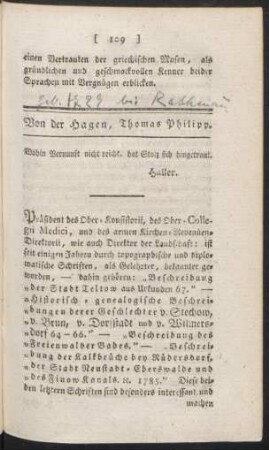 [ 109 ]
einen Vertrauten der griechischen Musen, als
gründlichen und geschmackvollen Kenner beider
Sprachen mit Vergnügen erblicken.
geb. 1729 bei Rathenau
Von der Hagen, Thomas Philipp.
Wohin Vernunft nicht reicht, hat Stolz sich hingetraut.
Haller.
Präsident des Ober-Konsistorii, des Ober-Colle-
gii Medici, und des armen Kirchen-Revenüen-
Direktorii, wie auch Direktor der Landschaft; ist
seit einigen Jahren durch topographische und diplo-
matische Schriften, als Gelehrter, bekannter gewor-
den, dahin gehören: — „Beschreibung der
der Stadt Teltow aus Urkunden 67." — „
„Historisch-genealogische Beschrei-
„bungen derer Geschlechter v. Stechow,
„v. Brun, v. Dorstadt und v. Wilmers-
„dorf 64-66." — „Beschreibung des
„Freienwalder Bades." — „Beschrei-
„bung der Kalkbrüche bey Rüdersdorf,
„der Stadt Neustadt-Eberswalde und
„des Finow Kanals. rc. 1785." Diese bei-
den letztern Schriften sind besonders interessant und
machen